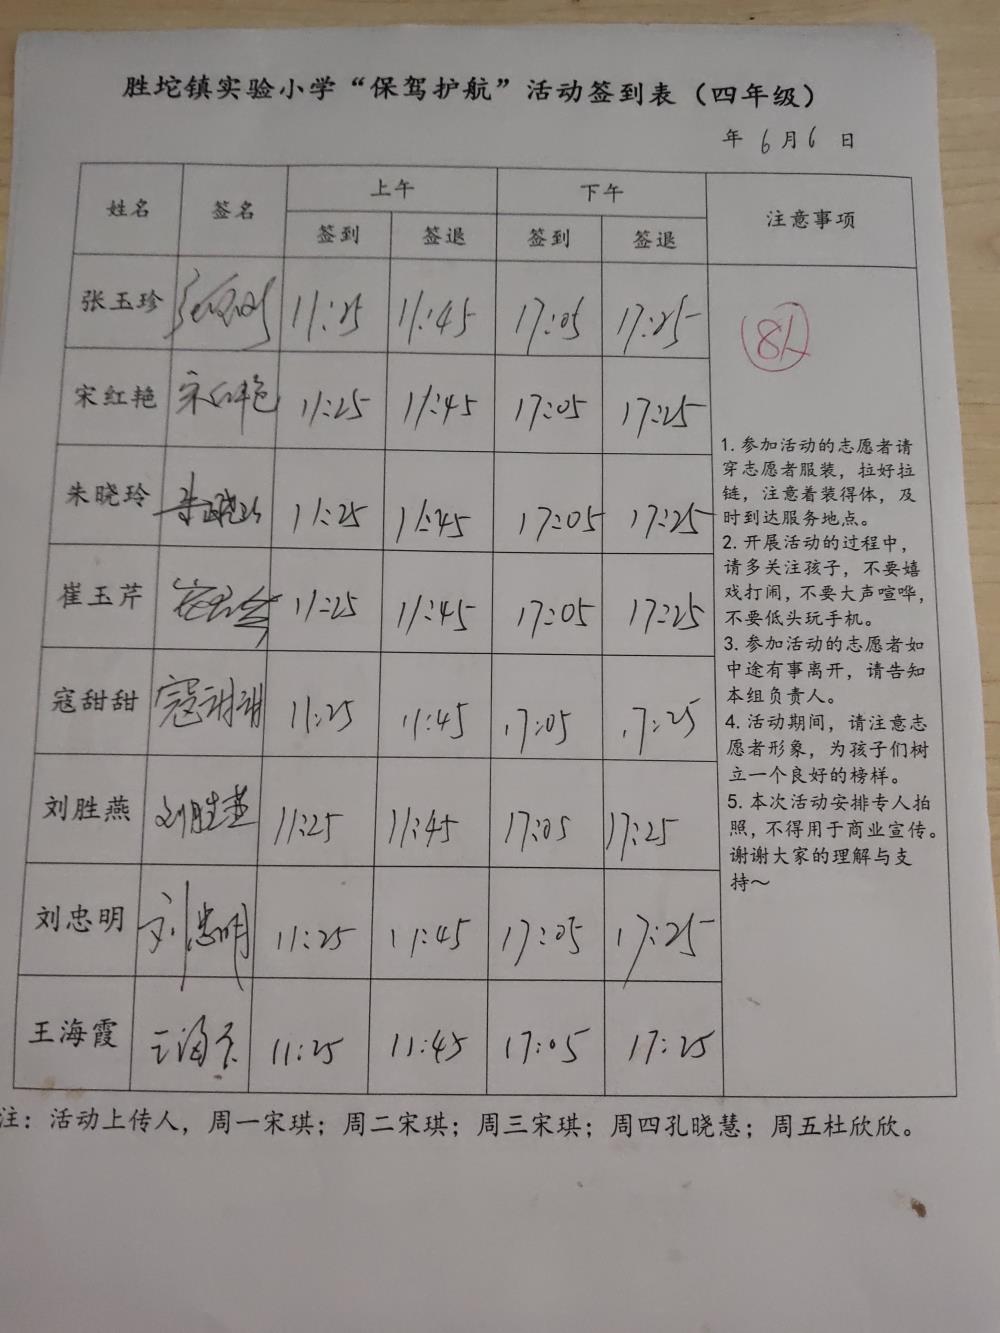 胜坨镇实验小学“保驾护航”活动签到表（四年级）
年 6月6 日
姓名 签名 上午 下午 注意事项
签到 签退 签到 签退
张玉珍 11:25 11:45 17:05 17:25
8人
宋红艳 宋红艳 11:25 11:45 17:05 17:25
朱晓玲 朱晓玲 11:25 11:45 17:05 17:25
崔玉芹 崔玉芹 11:25 11:45 17:05 17:25
寇甜甜 寇甜甜 11:25 11:45 17:05 17:25
刘胜燕 刘胜燕 11:25 11:45 17:05 17:25
刘忠明 刘忠明 11:25 11:45 17:05 17:25
王海霞 王海霞 11:25 11:45 17:05 17:25
1. 参加活动的志愿者请
穿志愿者服装，拉好拉
链，注意着装得体，及
时到达服务地点。
2. 开展活动的过程中，
请多关注孩子，不要嬉
戏打闹，不要大声喧哗，
不要低头玩手机。
3. 参加活动的志愿者如
中途有事离开，请告知
本组负责人。
4. 活动期间，请注意志
愿者形象，为孩子们树
立一个良好的榜样。
5. 本次活动安排专人拍
照，不得用于商业宣传。
谢谢大家的理解与支
持～
注：活动上传人，周一宋琪；周二宋琪；周三宋琪；周四孔晓慧；周五杜欣欣。